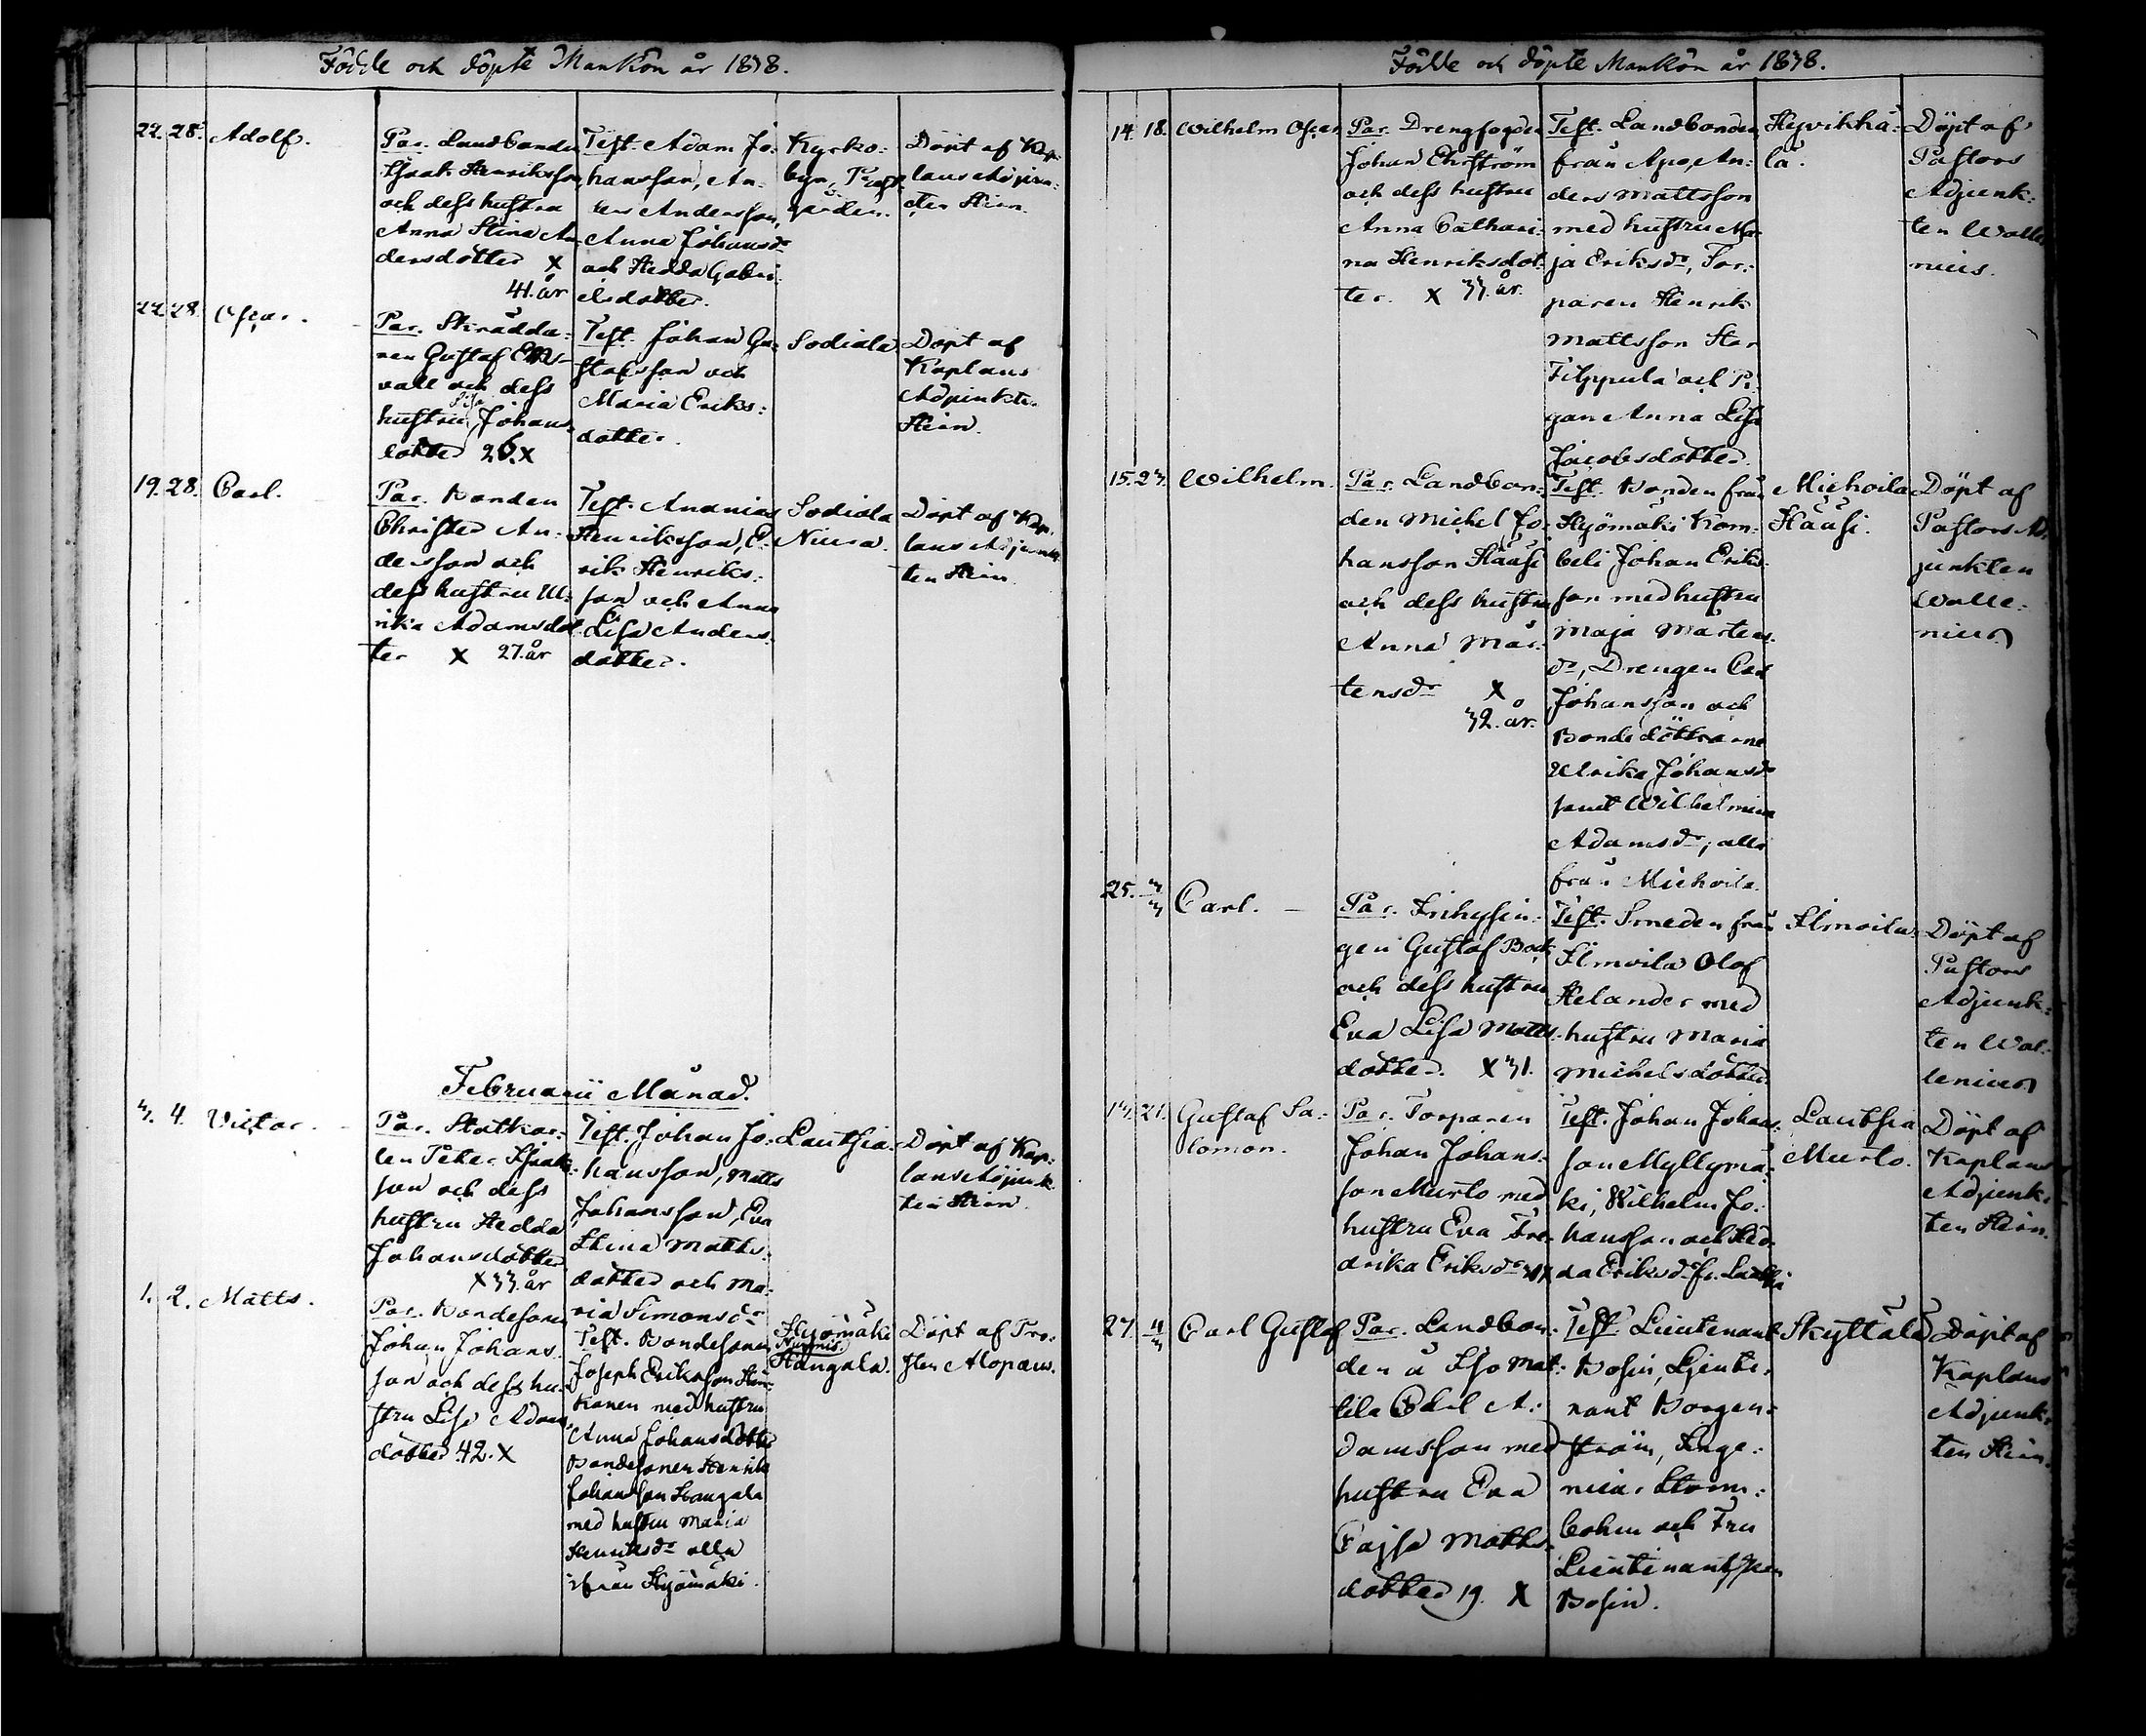 Födde och döpte Mankön år 1838.
22. 28. Adolf.
Par. Landbonden
Isaak Henriksson
och dess hustru
Anna Stina An
dersdotter X
41. år
Test. Adam Jo:
hansson, An:
ders Andersson,
Anna Johansdr
och Hedda Gabri:
elsdotter.
Kyrko:
byn, Prest
gården.
Döpt af Kap:
lans Adjunk:
ten Hein.
22. 28. Oscar.
Par. Skrädda:
ren Gustaf
vall och dess
hustru Lisa Johans
dotter 26. X
Test. Johan Gu:
stafsson och
Maria Eriks:
dotter.
Sodiala
Döpt af
Kaplans
Adjunkten
Hein.
19. 28. Carl.
Par. Bonden
Christer An:
dersson och
dess hustru Ul:
rika Adamsdot
ter X 27. år
Test. Ananias
Henriksson, E:
rik Henriks:
son och Anna
Lisa Anders:
dotter.
Sodiala
Niura.
Döpt af Kap:
lans Adjunk
ten Hein.
Februarii Månad.
3. 4. Victor.
Par. Statkar:
len Peter Isaaks:
son och dess
hustru Hedda
Johansdotter
X 33 år
Test. Johan Jo:
hansson, Matts
Johansson, Eva
Stina Matts:
dotter och Ma:
ria Simonsdr
Lauttia.
Döpt af Kap:
lans Adjunk
ten Hein.
1. 2. Matts.
Par. Bondesonen
Johan Johans
son och dess hu:
stru Lisa Adams
dotter 42. X
Test. Bondesonen
Joseph Eriksson
kanen med hustru
Anna Johansdotter
Bondesonen Henrik
Johansson Kangala
med hustru Maria
Henriksdr alla
ifrån Hyömäki.
Hyömäki
Nurmis.
Kangala.
Döpt af Pro:
sten Alopæus.
Födde och döpte Mankön år 1838.
14. 18. Wilhelm Oscar
Par. Drengfogden
Johan Ehrström
och dess hustru
Anna Cathari:
na Henriksdot:
ter. X 33. år.
Test. Landbonden
från Apo, An:
ders Mattsson
med hustru Ma
ja Eriksdr, Tor:
paren Henrik
Mattsson
Filppula och Pi
gan Anna Lisa
Jacobsdotter.
Hyvikkä:
lä.
Döpt af
Pastors
Adjunk:
ten Walle
nius.
15. 23. Wilhelm.
Par. Landbon:
den Michel Jo:
hansson Hausi
och dess hustru
Anna Mår:
tensdr X
32. år.
Test. Bonden från
Hyömäki Kom:
beli Johan Eriks
son med hustru
Maja Mårtens
dr, Drengen Carl
Johansson och
Bondedöttrarne
Ulrika Johansdr
samt Wilhelmina
Adamsdr, alla
från Michoila.
Michoila
Hausi.
Döpt af
Pastors Ad
junkten
Walle:
nius
25. 3/3 Carl.
Par. Inhysin:
gen Gustaf Back
och dess hustru
Eva Lisa Matts
dotter. X 31.
Test. Smeden från
Ilmoila Olof
Helander med
hustru Maria
Michelsdotter.
Ilmoila
Döpt af
Pastors
Adjunk:
ten Wal:
lenius
13. 21. Gustaf Sa:
lomon.
Par. Torparen
Johan Johans:
son Murto med
hustru Eva Fre:
drika Eriksdr
Test. Johan Johans:
son Myllymä:
ki, Wilhelm Jo:
hansson och Hed:
da Eriksdr fr. Lauttia
Lauttia
Murto.
Döpt af
Kaplans
Adjunk:
ten Hein.
27. 4/3 Carl Gustaf
Par. Landbon:
den å Iso Mat:
tila Carl A:
damsson med
hustru Eva
Cajsa Matts
dotter 19. X
Test. Lieutenant
Bosin, Lieute:
nant Borgen:
ström, Inge:
nieur Strom:
bohm och Fru
Lieutenantskan
Bosin.
Skyttälä
Döpt af
Kaplans
Adjunk:
ten Hein.